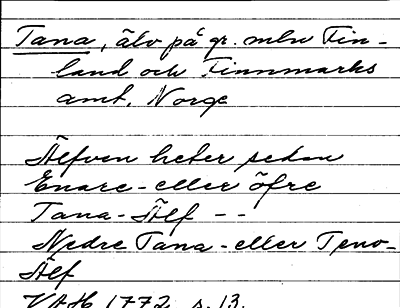 Tana, älv på gr. mln Fin-
land och Finnmarks
amt, Norge
Älfven heter sedan
Enare- eller öfre
Tana-Älf --
Nedre Tana- eller Teno-
Älf
VAH 1772 s. 13.